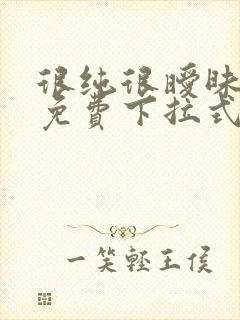 很纯很暧昧
免费下拉式
一笑轻王侯